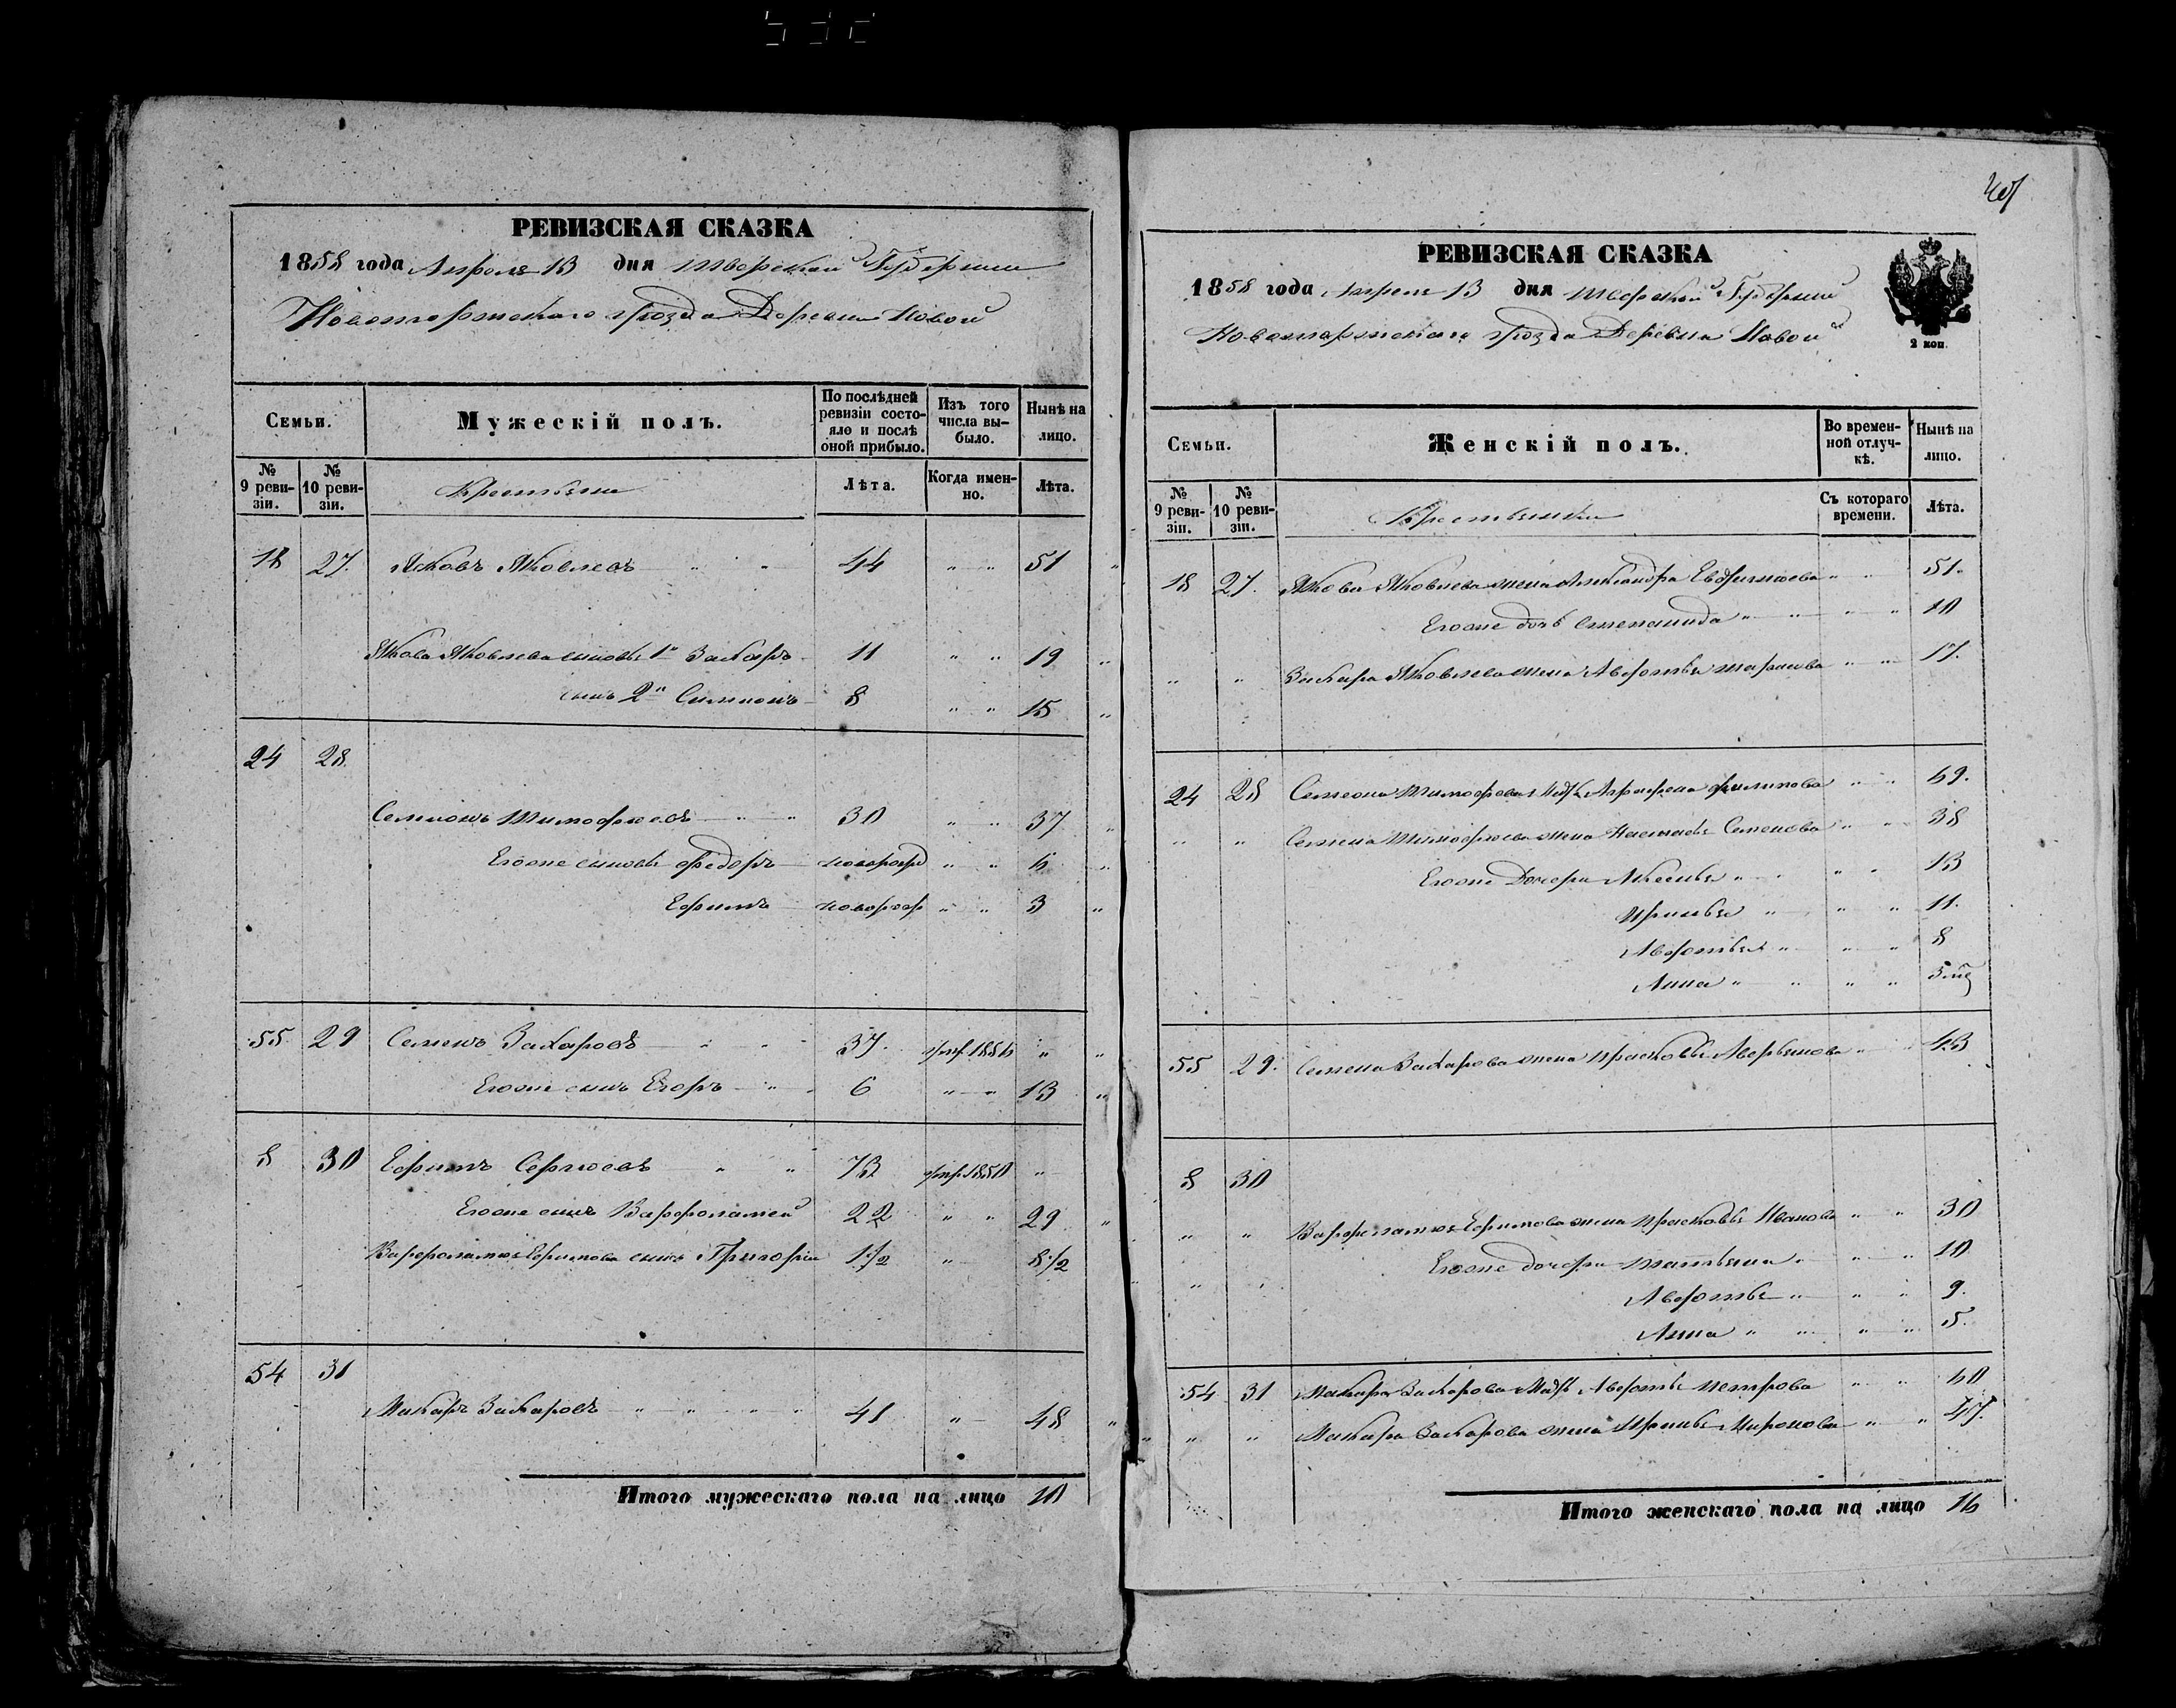 РЕВИЗСКАЯ СКАЗКА
1858 года Апреля 13 дня Тверской Губернии
Новоторжскаго уѣзда Деревни Новой
Семьи.
Мужескій полъ.
По послѣдней ревизіи состояло и послѣ оной прибыло.
Изъ того числа выбыло.
Нынѣ на лицо.
№ 9 ревизіи.
№ 10 ревизіи.
Крестьяне
Лѣта.
Когда именно.
Лѣта.
18 27. Яковъ Яковлевъ 44 " " 51 "
Якова Яковлева сыновья 1й Захаръ 11 " " 19 "
сынъ 2й Симионъ 8 " " 15 "
24 28
Семионъ Тимофѣевъ " " 30 " " 37 "
Егоже сыновья Федоръ новорожд " " 6 "
Ефимъ новорож " " 3 "
55 29 Семенъ Захаровъ " " 37. умр. 1856 " "
Егоже сынъ Егоръ " 6 " " 13 "
8 30 Ефимъ Сергѣевъ " " 73 умр. 1850 "
Егоже сынъ Варфоламей 22 " " 29 "
Варфоламея Ефимова сынъ Григорій 1 1/2 " 8 1/2
54 31
Макаръ Захаровъ " " " " 41 " 48 "
Итого мужескаго пола на лицо 10
РЕВИЗСКАЯ СКАЗКА
1858 года Апреля 13 дня Тверской Губерніи
Новоторжскаго уѣзда Деревни Новой
2 коп.
Семьи.
Женскій полъ.
Во временной отлучкѣ.
Нынѣ на лицо.
№ 9 ревизіи.
№ 10 ревизіи.
Крестьянки
Съ котораго времени.
Лѣта.
18 27. Якова Яковлева жена Александра Евфимоева " " 51.
Егоже дочь Степанида " " " " 10
" " Захара Яковлева жена Авдотья Тарасова " " 17.
24 28 Семеона Тимофѣева Мать Аграфена Филипова " " 69.
" " Семена Тимофѣева жена Настасья Семенова " " 38
Егоже Дочери Аксинья " " " " 13
Иринья " " " 11.
Авдотья " " " 8
Анна " " " " 5 мѣ
55 29. Семена Захарова жена Прасковья Аверьянова " " 43
8 30
" " Варфоламея Ефимова жена Прасковья Иванова " " 30
" " Егоже дочери Татьяна " " " 10
Авдотья " " " 9.
Анна " " " " 5.
54 31 Макара Захарова Мать Авдотья Петрова " " 60
" " " Макара Захарова жена Иринья Миронова " " 47.
Итого женскаго пола на лицо 16